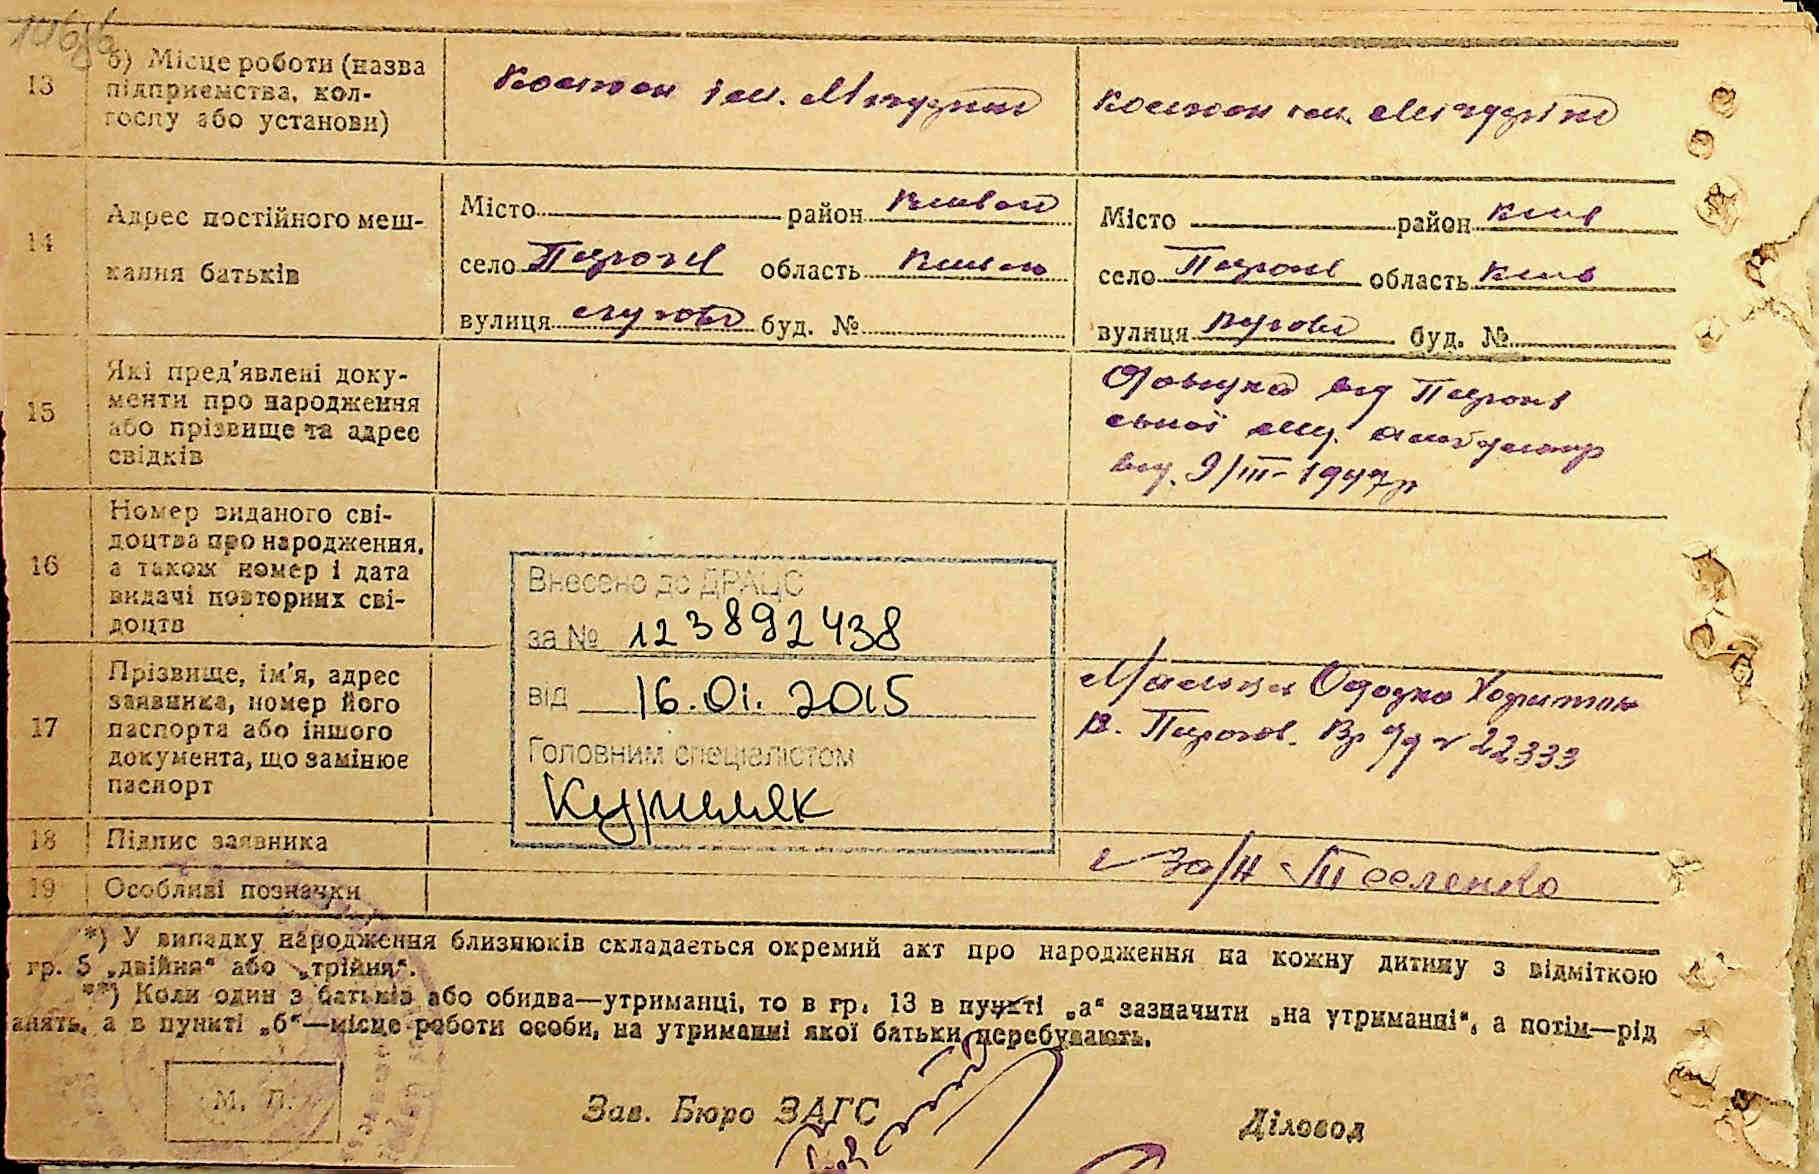 13
б) Місце роботи (назва
підприємства, кол-
госпу або установи)
Колгосп ім. Мічуріна
Колгосп ім. Мічуріна
14
Адрес постійного меш-
кання батьків
Місто район Київськ
село Пирогів область Київськ
вулиця Лугова буд. №
Місто район Київ
село Пирогів область Київ
вулиця Лугова буд. №
15
Які пред'явлені доку-
менти про народження
або прізвище та адрес
свідків
Довідка від Пирогів
ської амбулатор
від 9/III-1947р
16
Номер виданого сві-
доцтва про народження,
а також номер і дата
видачі повторних сві-
доцтв
Внесено до ДРАЦС
за № 123892438
від 16.01.2015
Головним спеціалістом
17
Прізвище, ім'я, адрес
заявника, номер його
паспорта або іншого
документа, що замінює
паспорт
с. Пирогів. 22333
18
Підпис заявника
19
Особливі позначки
*) У випадку народження близнюків складається окремий акт про народження на кожну дитину з відміткою
гр. 5 „двійня“ або „трійня“.
**) Коли один з батьків або обидва—утриманці, то в гр. 13 в пункті „а“ зазначити „на утриманні“, а потім—рід
анять, а в пункті „б“—місце роботи особи, на утриманні якої батьки перебувають.
М. П.
Зав. Бюро ЗАГС
Діловод